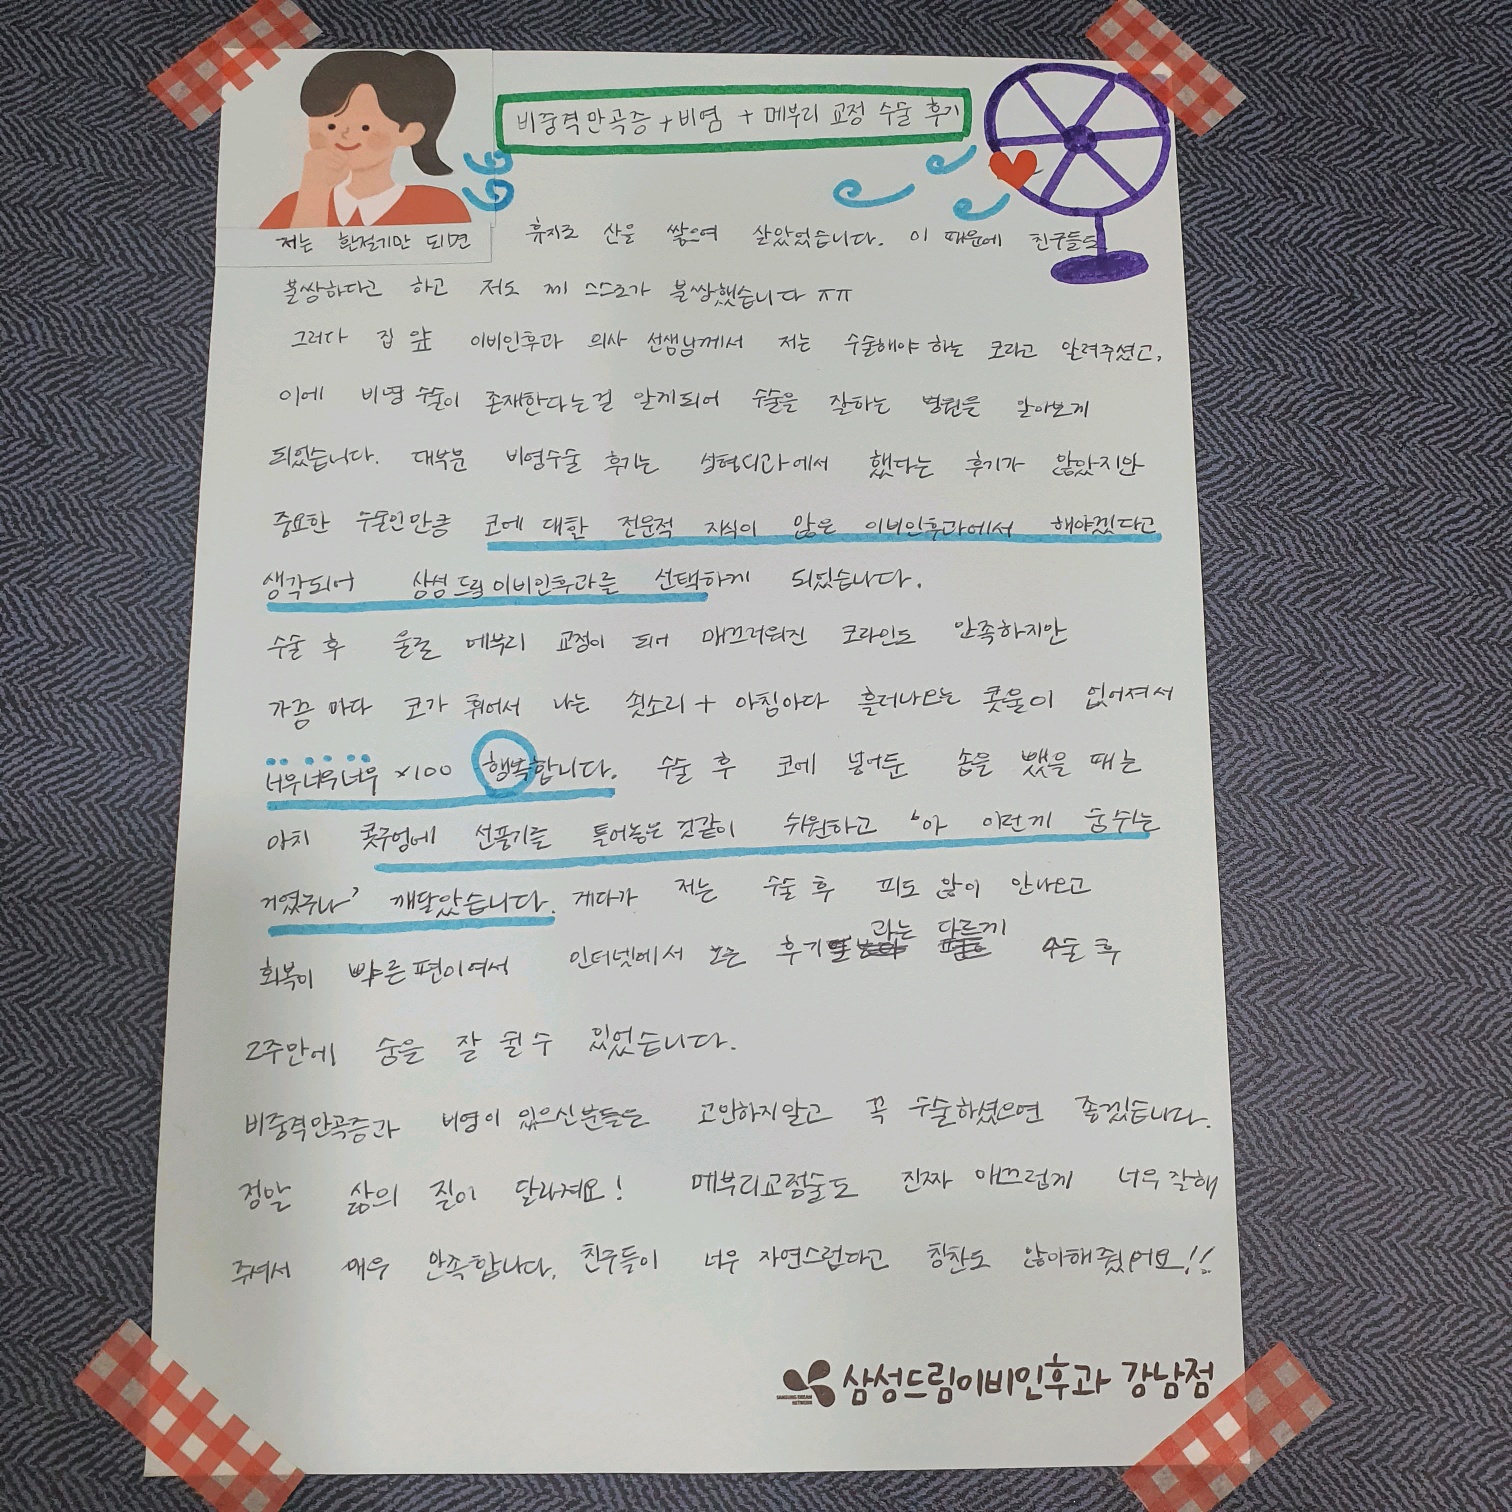 비중격만곡증 + 비염 + 메부리 교정 수술 후기
저는 환절기만 되면 휴지로 산을 쌓으며 살았었습니다. 이 때문에 친구들도
불쌍하다고 하고 저도 제 스스로가 불쌍했습니다 ㅠㅠ
그러다 집 앞 이비인후과 의사 선생님께서 저는 수술해야 하는 코라고 알려주셨고,
이에 비염 수술이 존재한다는걸 알게되어 수술을 잘하는 병원을 알아보게
되었습니다. 대부분 비염수술 후기는 성형외과에서 했다는 후기가 많았지만
중요한 수술인만큼 코에 대한 전문적 지식이 많은 이비인후과에서 해야겠다고
생각되어 삼성드림이비인후과를 선택하게 되었습니다.
수술 후 물론 메부리 교정이 되어 매끄러워진 코라인도 만족하지만
가끔 마다 코가 휘어서 나는 쇳소리 + 아침마다 흘러나오는 콧물이 없어져서
너무너무너무 x100 행복합니다. 수술 후 코에 넣어둔 솜을 뺐을 때는
마치 콧구멍에 선풍기를 틀어놓은 것같이 쉬원하고 '아 이런게 숨쉬는
거였구나' 깨달았습니다. 게다가 저는 수술 후 피도 많이 안나오고
회복이 빠른편이여서 인터넷에서 보는 후기과는 다르게 수술 후
2주만에 숨을 잘 쉴 수 있었습니다.
비중격만곡증과 비염이 있으신분들은 고민하지말고 꼭 수술하셨으면 좋겠습니다.
정말 삶의 질이 달라져요! 메부리교정술도 진짜 매끄럽게 너무 잘해
주셔서 매우 만족합니다. 친구들이 너무 자연스럽다고 칭찬도 많이해줬어요!!
SAMSUNG DREAM
NETWORK
삼성드림이비인후과 강남점